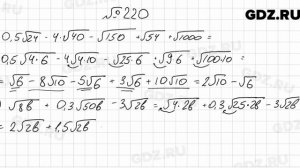 GDZ.RU
№ 220
0,5√24 - 4√40 - √150 + √54 + √1000 =
0,5√4·6 - 4√4·10 - √25·6 + √9·6 + √100·10 =
= √6 - 8√10 - 5√6 + 3√6 + 10√10 = 2√10 - √6
√8b + 0,3√50b - 3√2b = √4·2b + 0,3√25·2b - 3√2b
= 2√2b + 1,5√2b
GDZ.RU